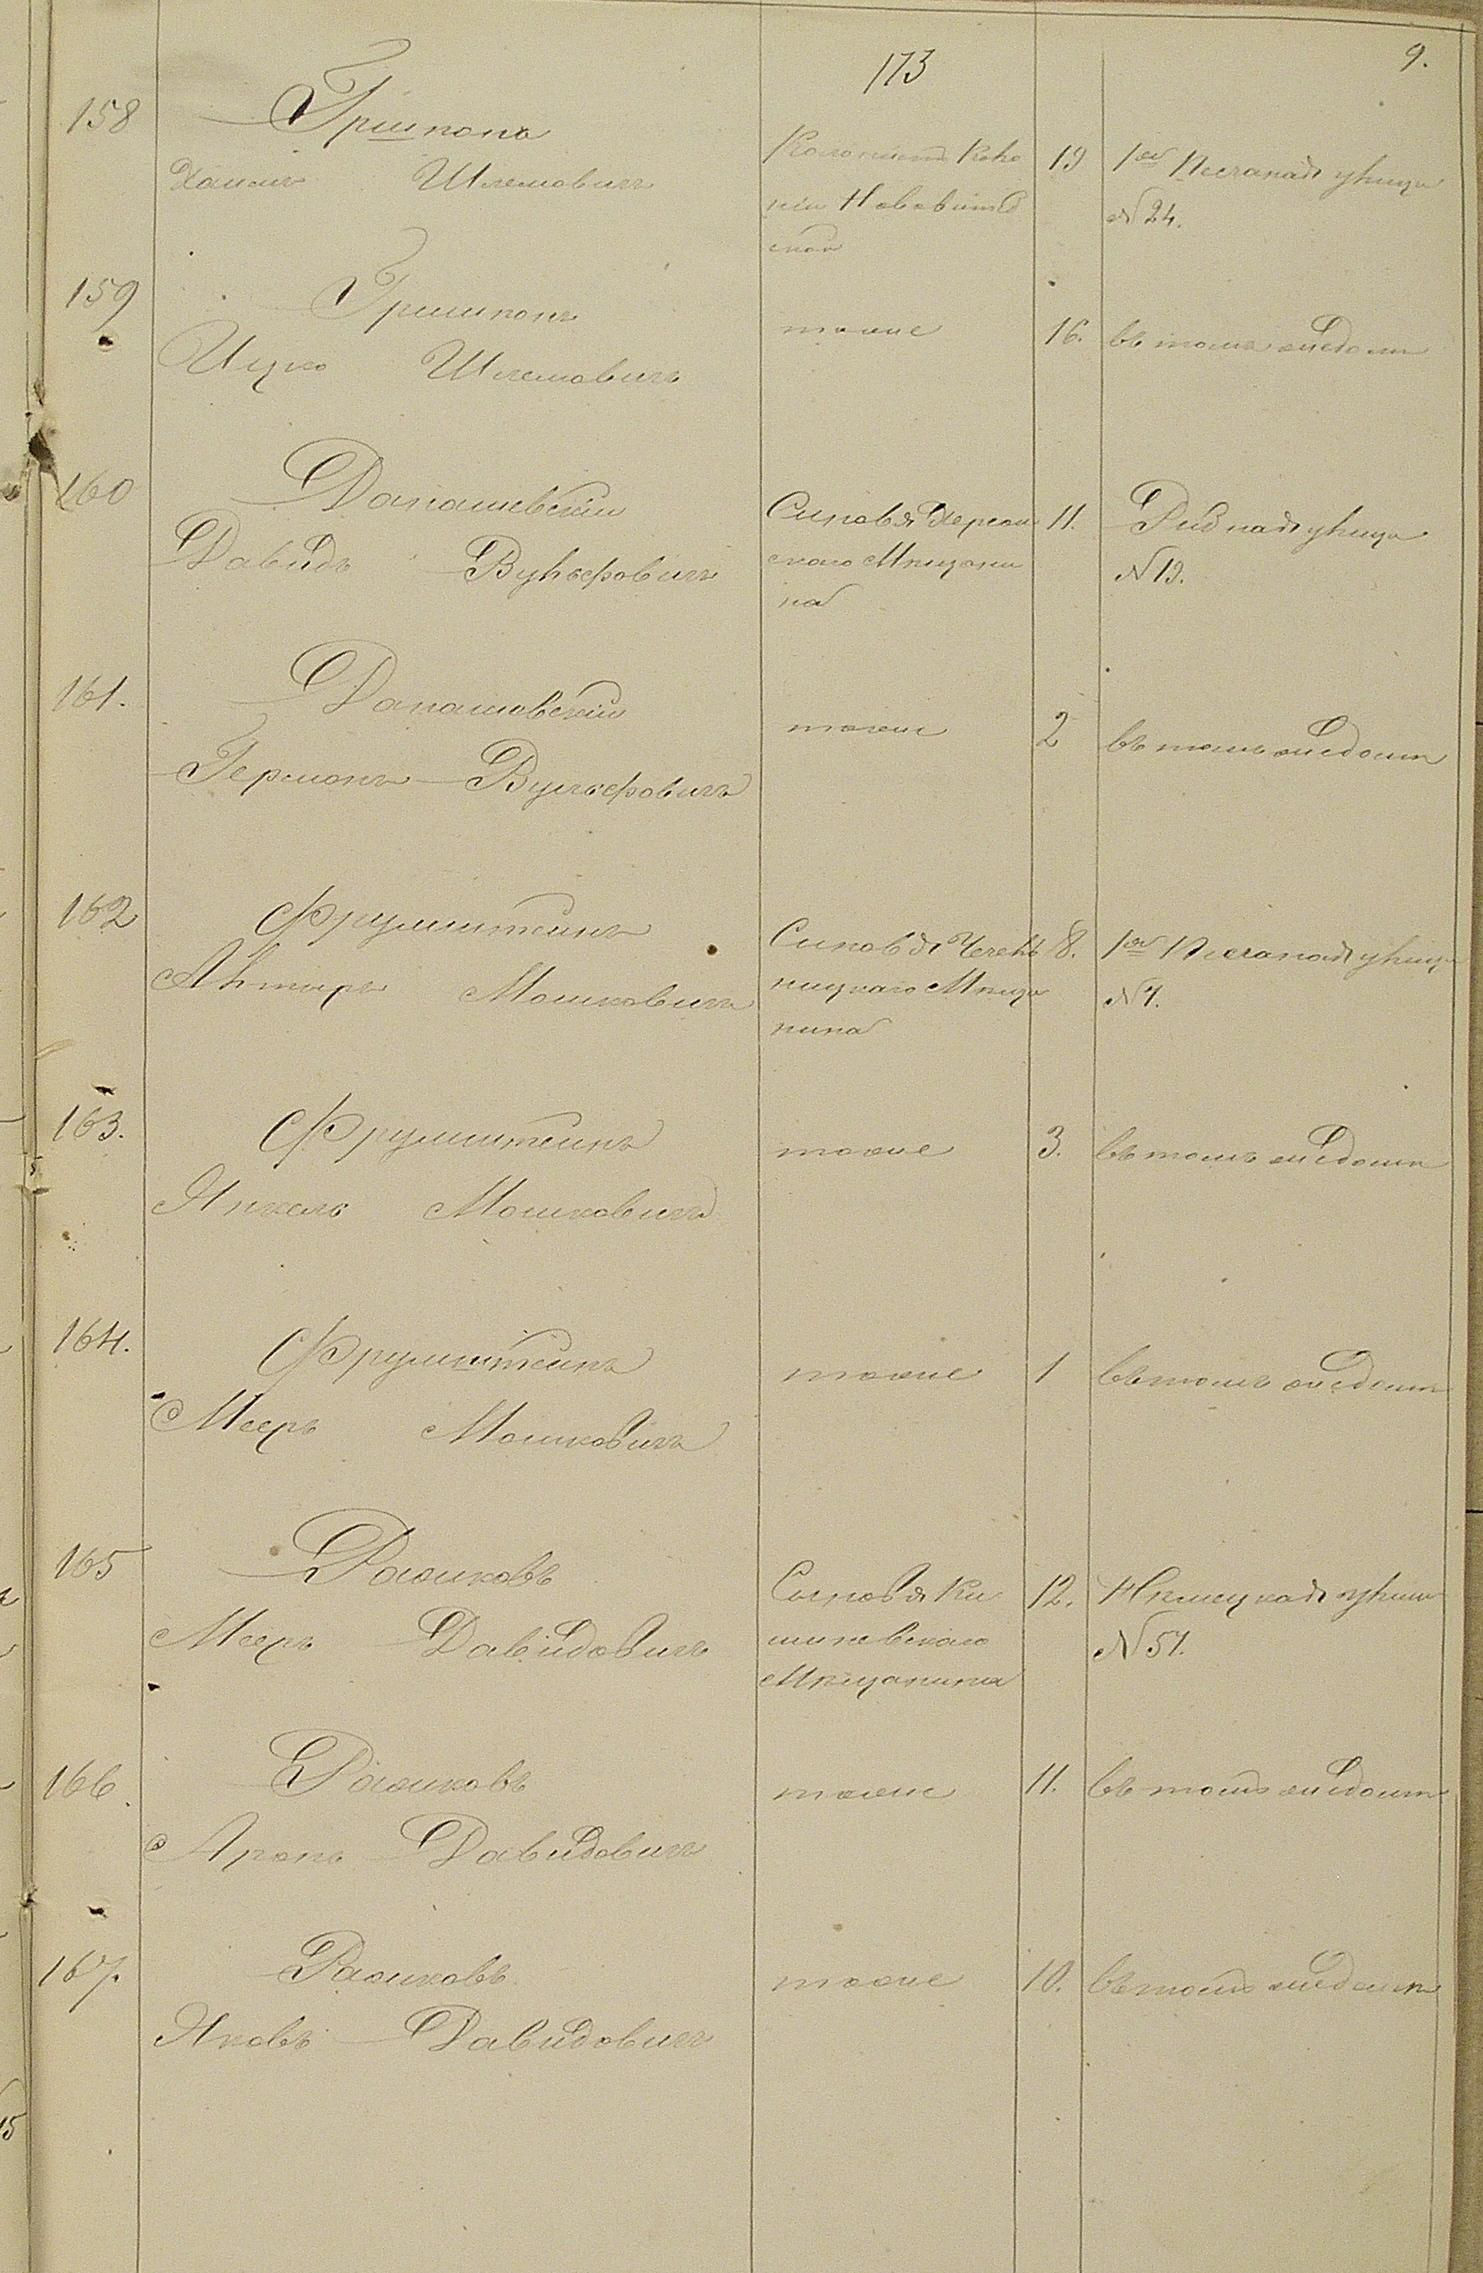 173
9.
158
Гришпонъ
Хаимъ Шлемовичъ
Колонистъ Коло
ніи Нововитеб
ской
19
1ая Песчаная улица
№ 24.
159
Гришпонъ
Ицко Шлемовичъ
тоже
16.
въ томъ же домѣ
160
Данашевскій
Давидъ Вульфовичъ
Сыновья Херсон
скаго Мѣщани
на
11.
Рибная улица
№ 19.
161.
Данашевскій
Германъ Вульфовичъ
тоже
2
въ томъ же домѣ
162
Фрумштейнъ
Альтеръ Мошковичъ
Сыновья
ницкаго Мѣща
нина
8.
1ая Песчаная улица
№ 7.
163.
Фрумштейнъ
Янкель Мошковичъ
тоже
3.
въ томъ же домѣ
164.
Фрумштейнъ
Мееръ Мошковичъ
тоже
1
въ томъ же домѣ
165
Рашковъ
Мееръ Давидовичъ
Сыновья Ки
шиневскаго
Мѣщанина
12.
Нѣмецкая улица
№ 57.
166.
Рашковъ
Аронъ Давидовичъ
тоже
11.
въ томъ же домѣ
167.
Рашковъ
Яковъ Давидовичъ
тоже
10.
въ томъ же домѣ